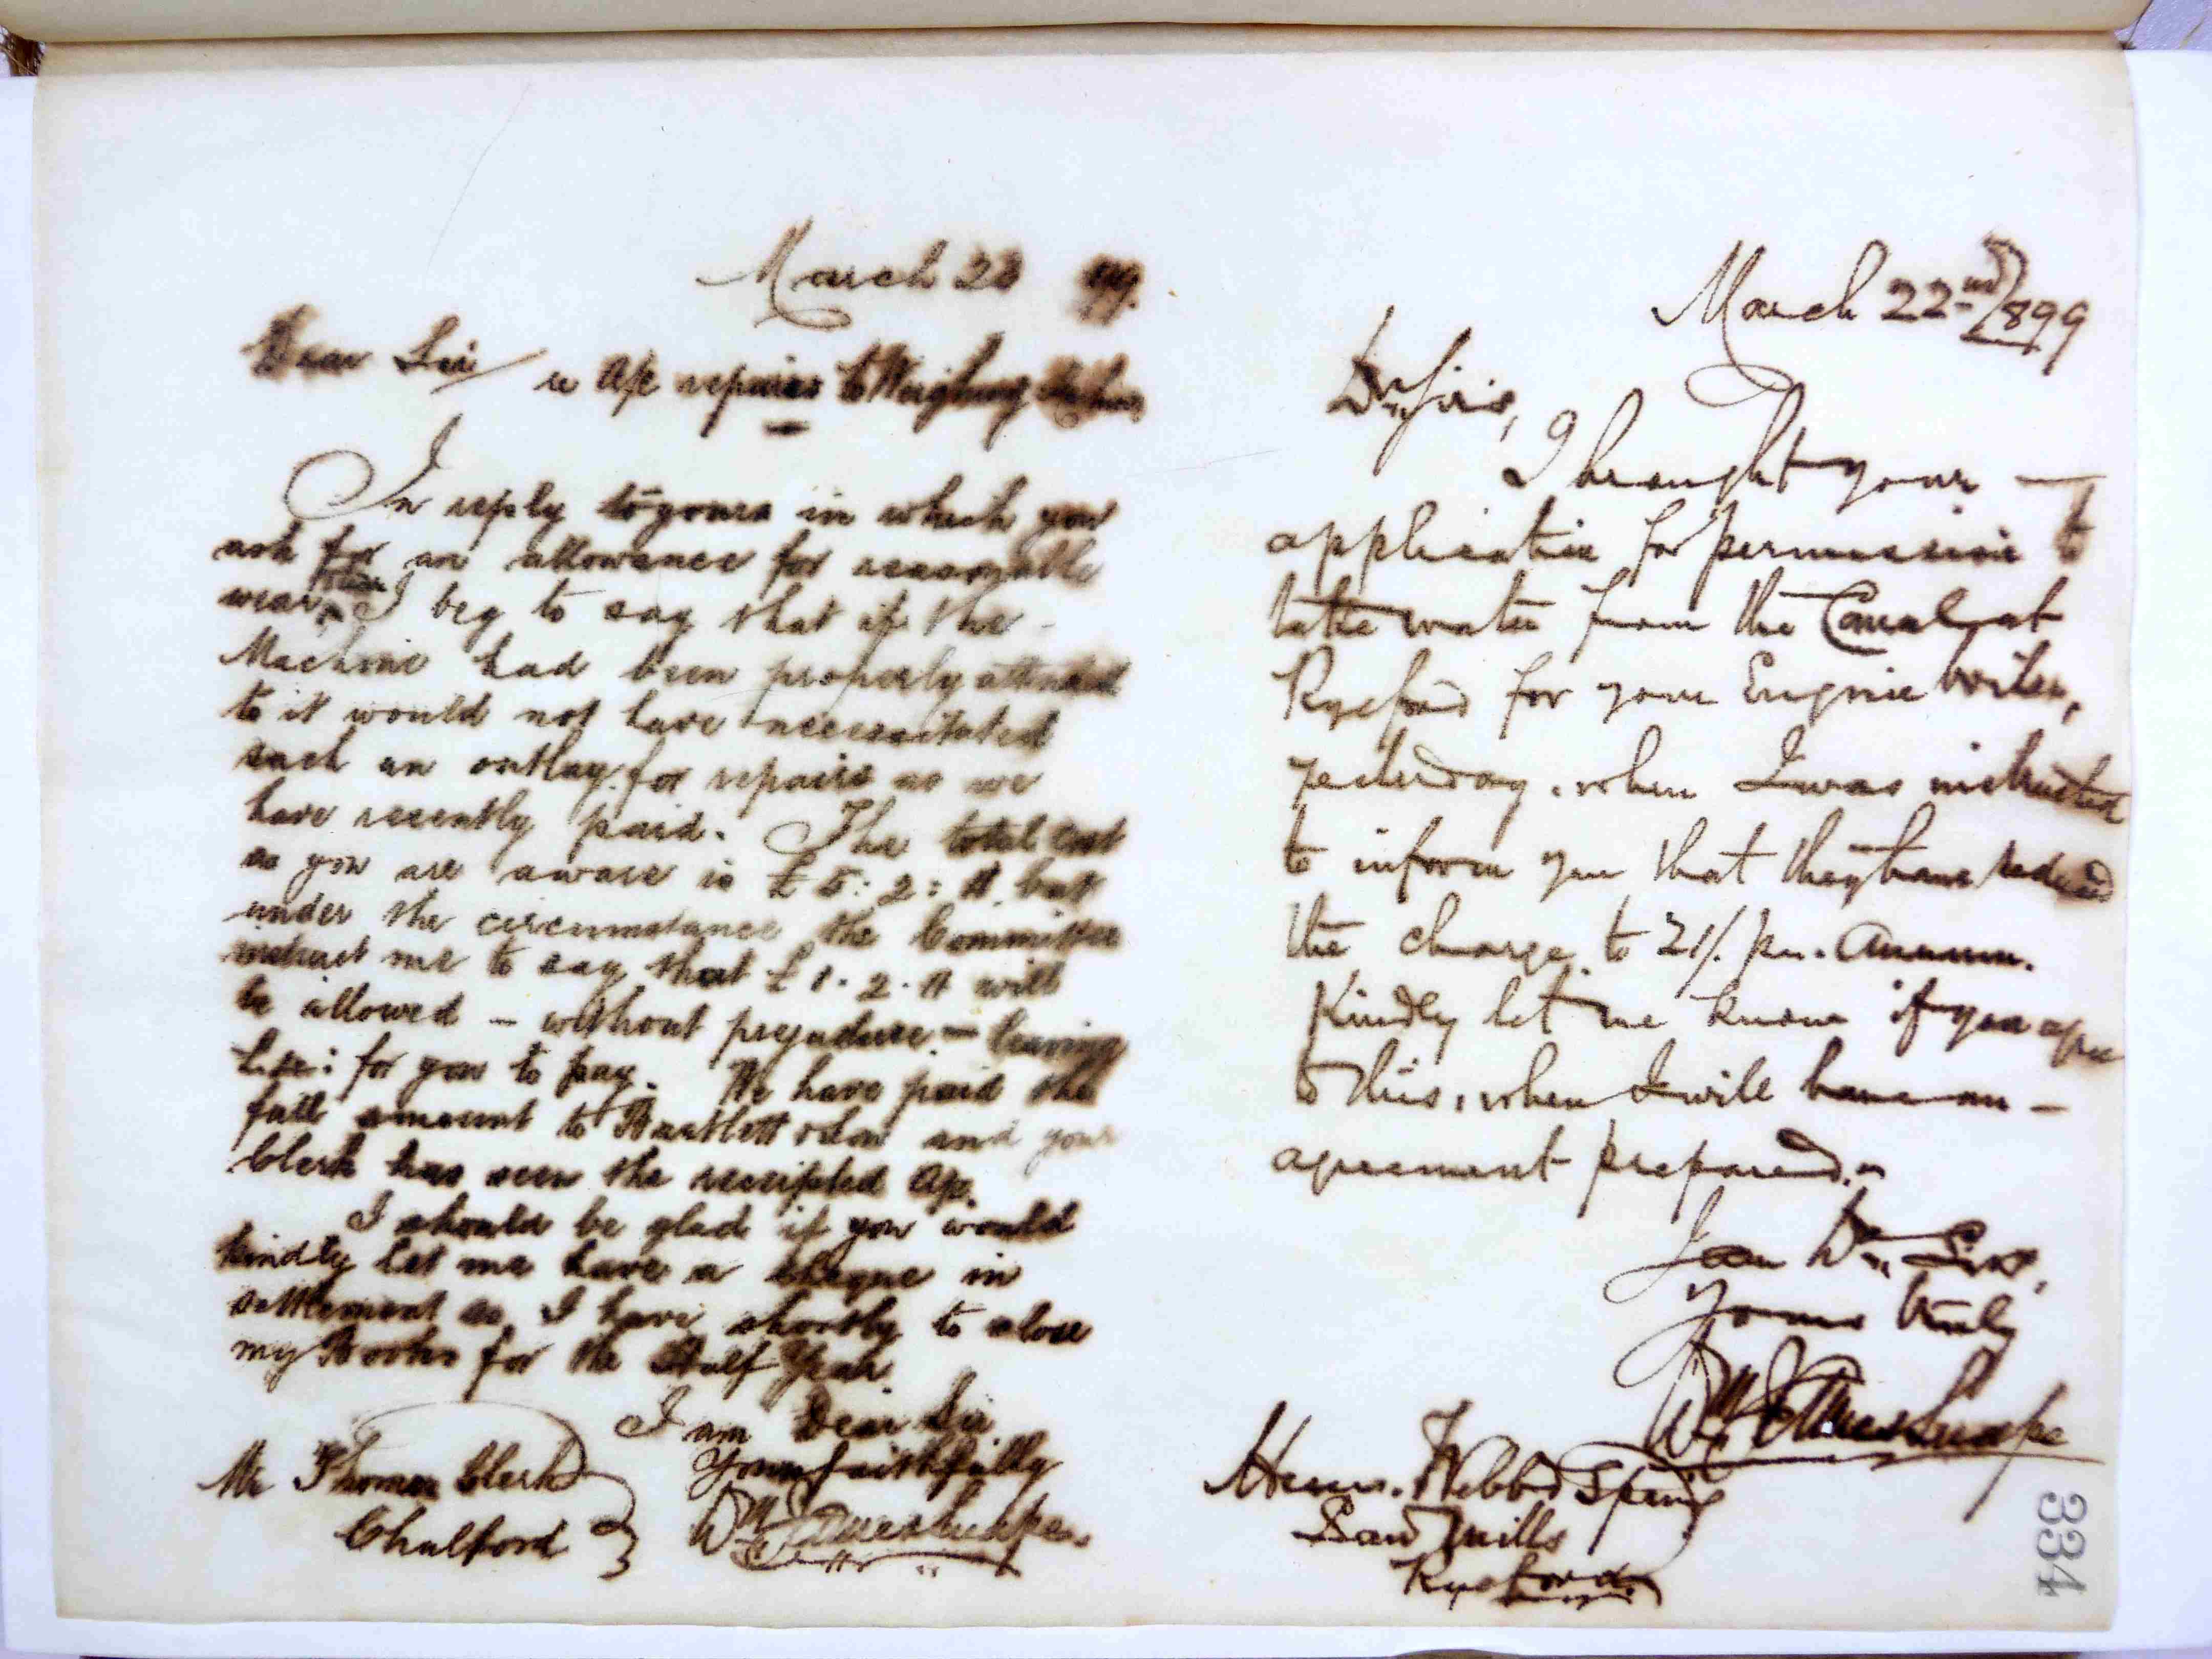 March 22 99.
Dear Sir/ re a/c repairs to Weighing Machine
In reply to yours in which you
ask for an allowance for reasonable
wear I beg to say that if the
Machine had been properly attended
to it would not have necessitated
such an outlay for repairs as we
have recently paid. The total cost
as you are aware is £5: 2: 11 but
under the circumstance the Committee
instruct me to say that £1. 2. 11 will
be allowed - without prejudice - leaving
for you to pay. We have paid the
full amount to Bartlett & Son and your
Clerk has seen the receipted a/c.
I should be glad if you would
kindly let me have a cheque in
settlement as I have shortly to close
my Books for the Half Year
I am Dear Sir
Yours faithfully
Mr Thomas Clerk
Chalford
March 22nd 1899
Dr Sirs,
I brought your —
application for permission to
take water from the Canal at
Ryeford for your Engine boiler,
yesterday, when I was instructed
to inform you that they have reduced
the charge to 21/. per. Annum.
Kindly let me know if you agree
to this, when I will have an —
agreement prepared.
I am Dr Sirs,
Yours truly
Messrs. Webb & Spring
Saw Mills
Ryeford
334